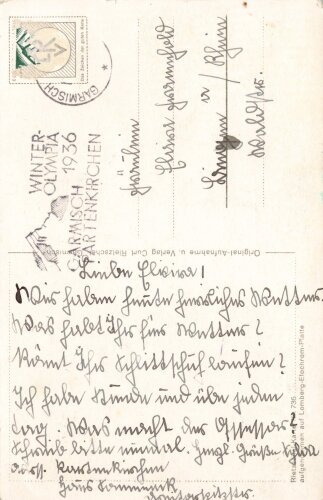 GARMISCH
WINTER-
OLYMPIA
1936
GARMISCH
PARTENKIRCHEN
Fräulein
Elvira
Singen a/Rhein
Original-Aufnahme u. Verlag Curt
Liebe Elvira!
Wir haben heute herrliches Wetter.
Was habt Ihr für Wetter?
Könnt Ihr Schlittschuh laufen?
Ich habe Stunde und übe jeden
Tag. Was macht der Assessor?
Schreib bitte einmal. Herzl. Grüße
Partenkirchen
Haus
736
aufgenommen auf Lomberg-Elochrom-Platte